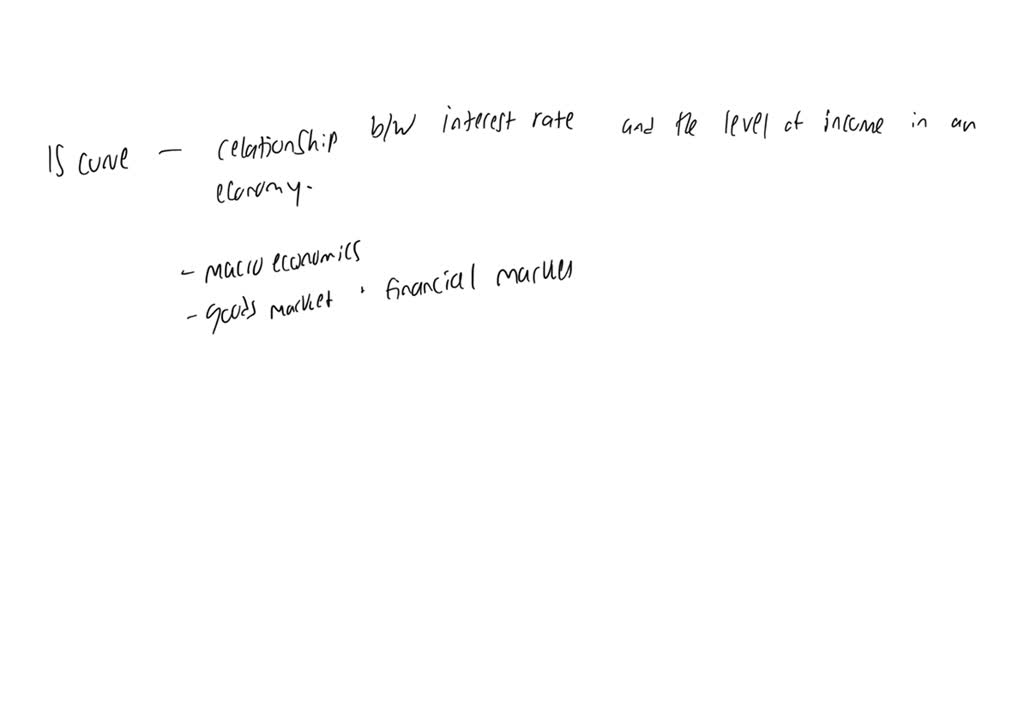 IS curve — relationship b/w interest rate and the level of income in an
economy.
- macro economics
- goods market · financial market